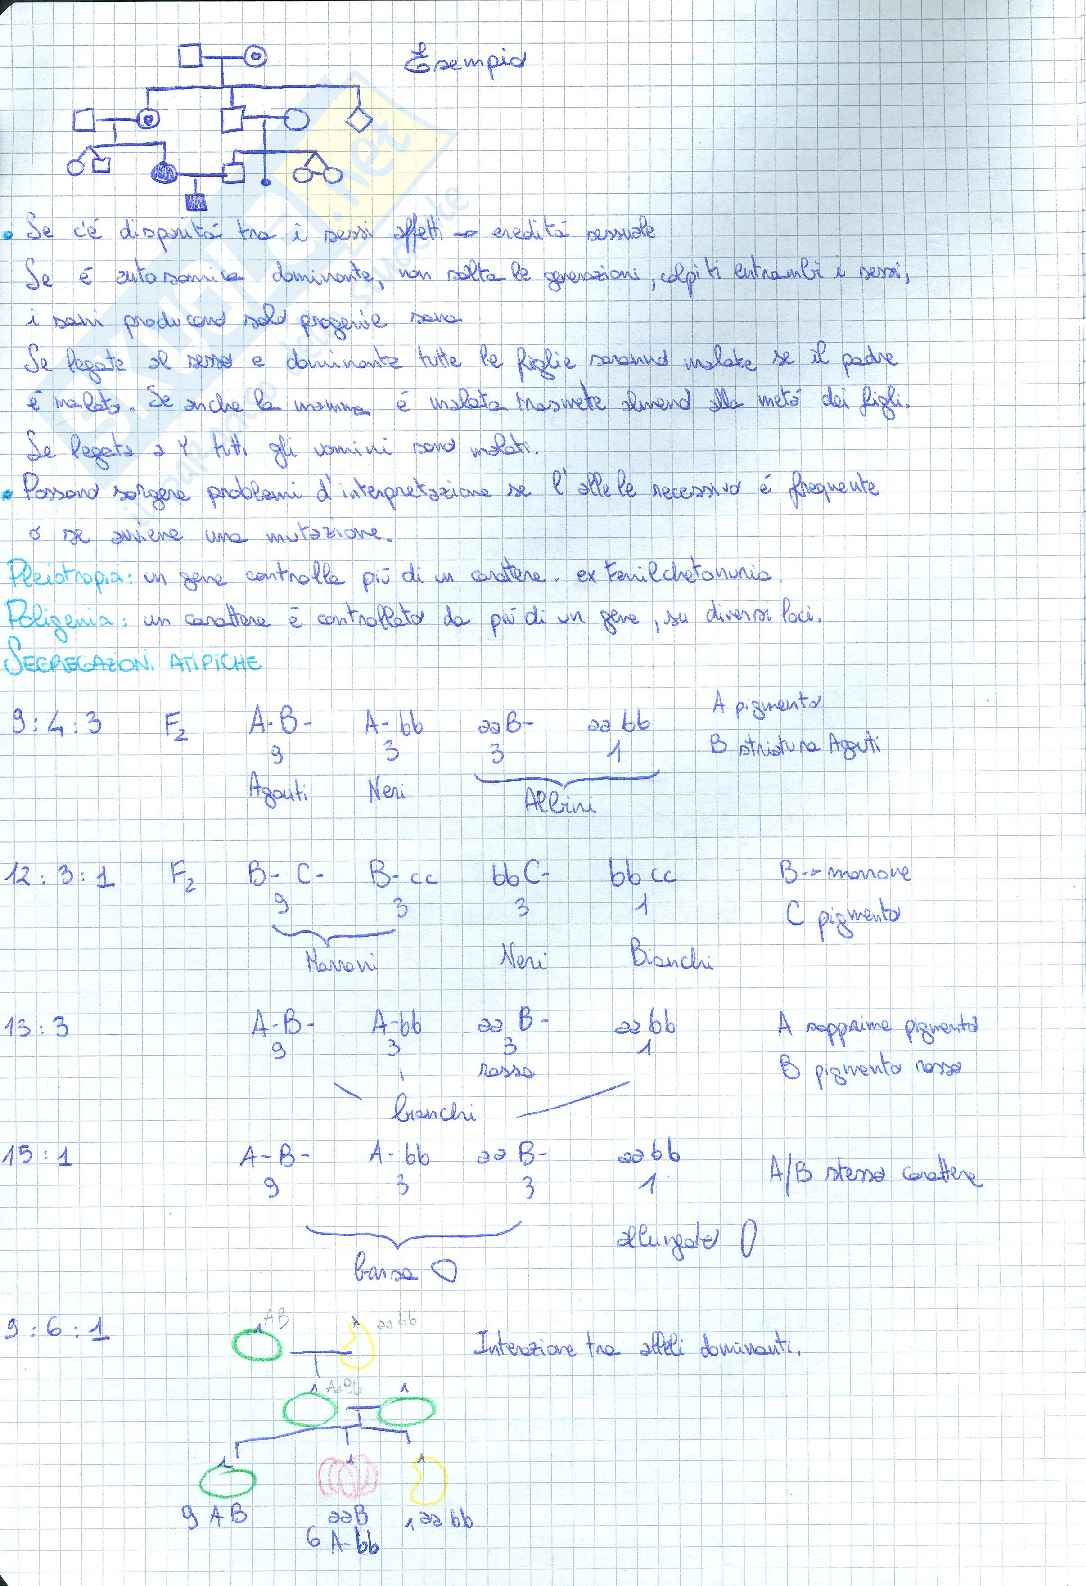 Esempio
• Se c'è disparità tra i sessi affetti → eredità sessuale
Se è autosomica dominante, non salta le generazioni, colpiti entrambi i sessi,
i sani producono solo progenie sana
Se legata al sesso e dominante tutte le figlie saranno malate se il padre
è malato. Se anche la mamma è malata trasmette almeno alla metà dei figli.
Se legata a Y tutti gli uomini sono malati.
• Possono sorgere problemi d'interpretazione se l'allele recessivo è frequente
o se avviene una mutazione.
Pleiotropia: un gene controlla più di un carattere. ex fenilchetonuria.
Poligenia: un carattere è controllato da più di un gene, su diversi loci.
SEGREGAZIONI ATIPICHE
9:4:3 F2 A-B- A-bb aaB- aabb A pigmento
9 3 3 1 B striatura Aguti
Agouti Neri Albini
12:3:1 F2 B-C- B-cc bbC- bbcc B→marrone
9 3 3 1 C pigmento
Marroni Neri Bianchi
13:3 A-B- A-bb aaB- aabb A sopprime pigmento
9 3 3 1 B pigmento rosso
rosso
bianchi
15:1 A-B- A-bb aaB- aabb A/B stesso carattere
9 3 3 1
allungato
borsa
9:6:1 AB aabb Interazione tra alleli dominanti.
9 AB aaB 1 aabb
6 A-bb